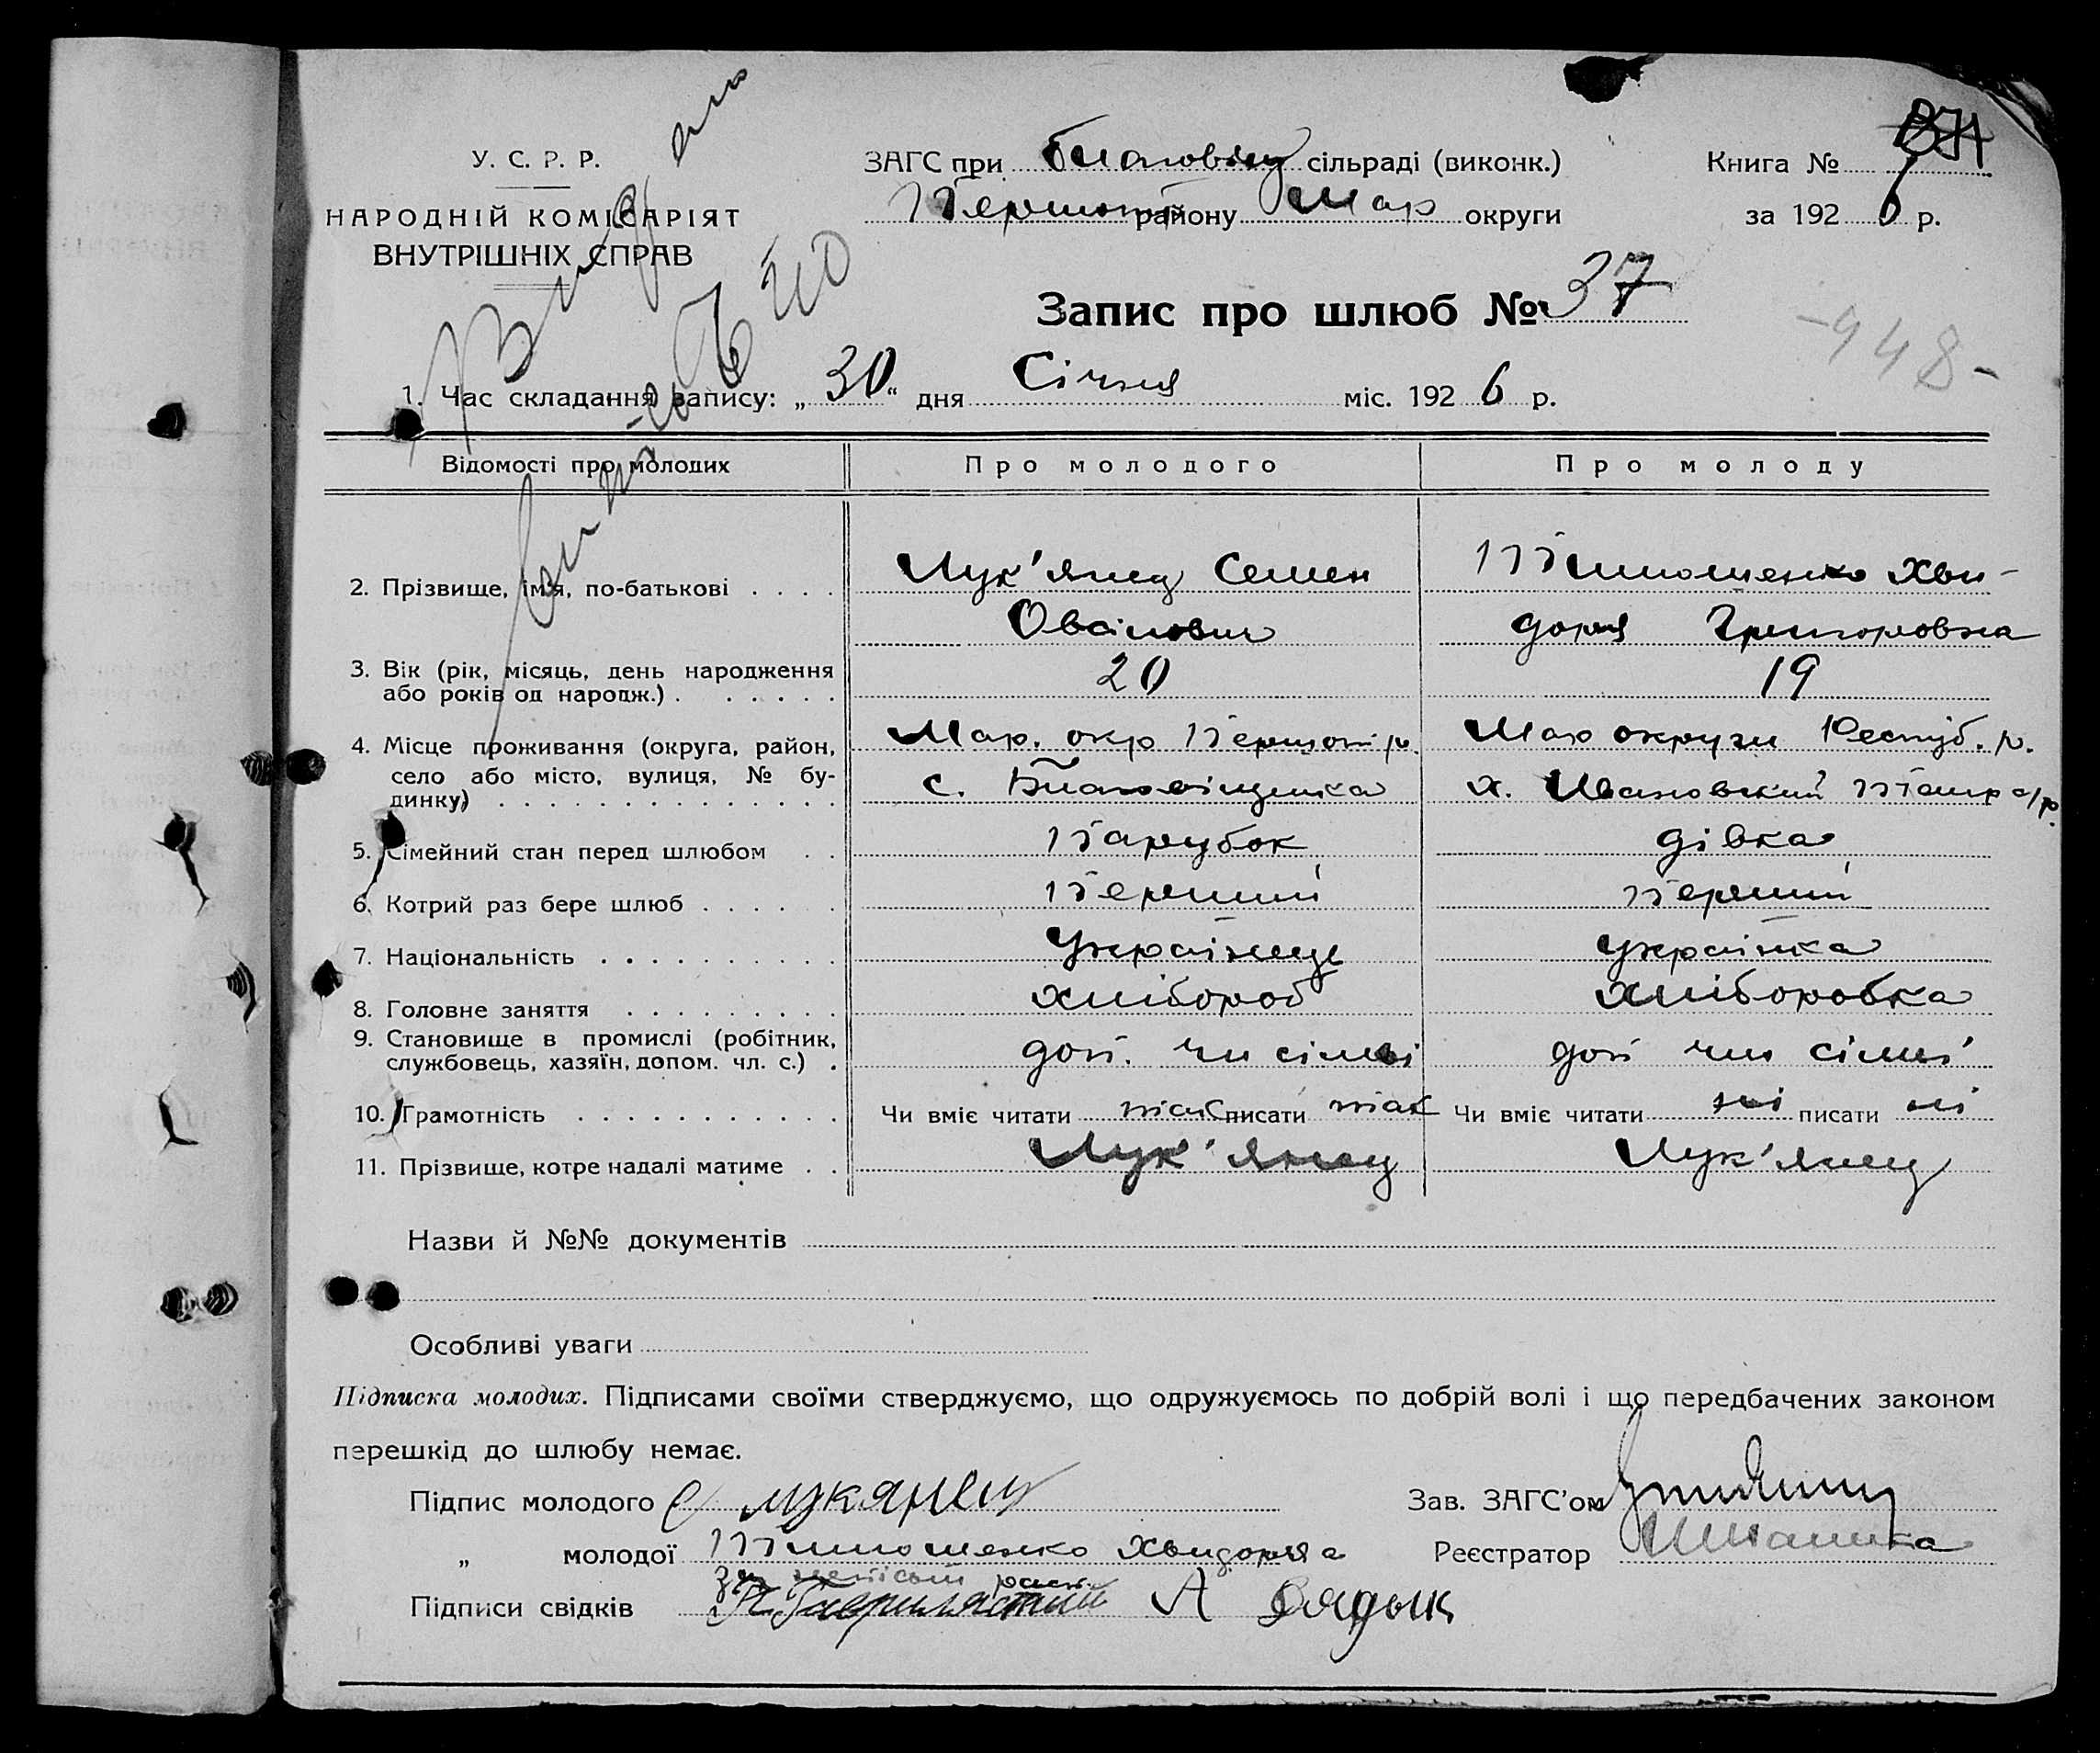 У. С. Р. Р.
НАРОДНІЙ КОМІСАРІЯТ
ВНУТРІШНІХ СПРАВ
ЗАГС при Благовіщ сільраді (виконк.)
Першот району Мар округи
Книга №
за 1926 р.
Запис про шлюб № 37
-948-
1. Час складання запису: „30“ дня Січня міс. 1926 р.
Відомості про молодих Про молодого Про молоду
2. Прізвище, ім'я, по-батькові . . . . Лук'янец Семен Тимошенко Хви-
Овсійович дорія Григоровна
3. Вік (рік, місяць, день народження
або років од народж.) . . . . . . 20 19
4. Місце проживання (округа, район, Мар. окр Першот р. Мар округи Респуб. р.
село або місто, вулиця, № бу- с. Благовіщенка х. Ивановский с/р.
динку)
5. Сімейний стан перед шлюбом . . Парубок дівка
6. Котрий раз бере шлюб . . . . . Перший перший
7. Національність . . . . . . . . . . Українець українка
8. Головне заняття . . . . . . . . . Хлібороб Хліборобка
9. Становище в промислі (робітник,
службовець, хазяїн, допом. чл. с.) . доп. чл сімьї доп чл сімьї
10. Грамотність . . . . . . . . . . . Чи вміє читати так писати так Чи вміє читати ні писати ні
11. Прізвище, котре надалі матиме . . Лук'янец Лук'янец
Назви й №№ документів
Особливі уваги
Підписка молодих. Підписами своїми стверджуємо, що одружуємось по добрій волі і що передбачених законом
перешкід до шлюбу немає.
Підпис молодого С лукянец Зав. ЗАГС'ом
„ молодої Тимошенко Хвидорія а Реєстратор
Підписи свідків А